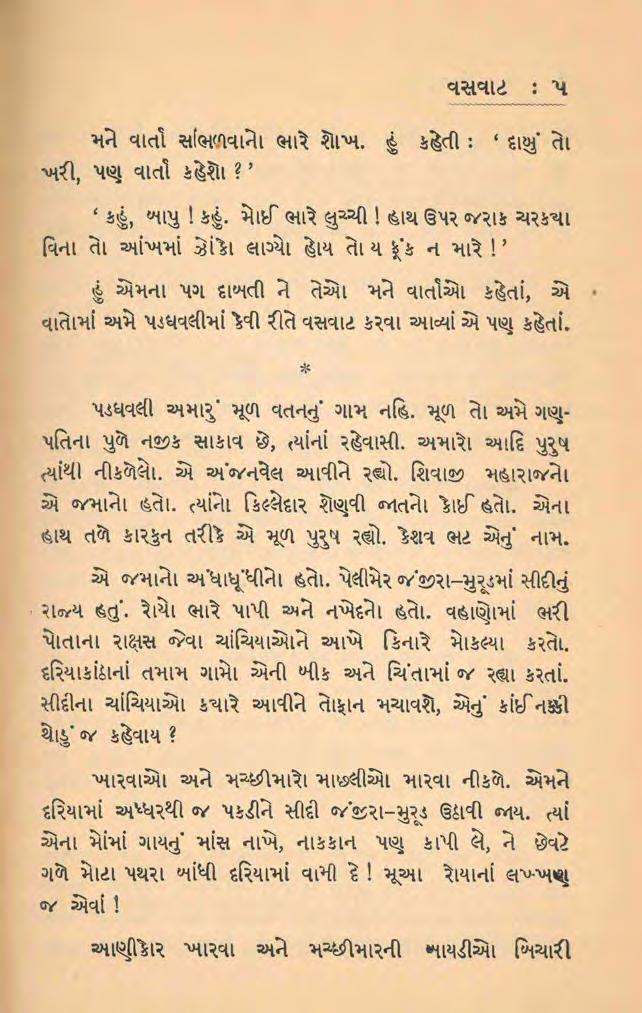 વસવાટ : ૫
મને વાર્તા સાંભળવાનો ભારે શોખ. હું કહેતી : ‘ દાબું તો
ખરી, પણ વાર્તા કહેશો ? ’
‘ કહું, બાપુ ! કહું. મોઈ ભારે લુચ્ચી ! હાથ ઉપર જરાક ચરકચા
વિના તો આંખમાં ઝોંકો લાગ્યો હોય તો ય ફૂંક ન મારે ! ’
હું એમના પગ દાબતી ને તેઓ મને વાર્તાઓ કહેતાં, એ
વાતોમાં અમે પડઘવલીમાં કેવી રીતે વસવાટ કરવા આવ્યાં એ પણ કહેતાં.
*
પડઘવલી અમારું મૂળ વતનનું ગામ નહિ. મૂળ તો અમે ગણ-
પતિના પુળે નજીક સાકાવ છે, ત્યાંનાં રહેવાસી. અમારો આદિ પુરુષ
ત્યાંથી નીકળેલો. એ અંજનવેલ આવીને રહ્યો. શિવાજી મહારાજનો
એ જમાનો હતો. ત્યાંનો કિલ્લેદાર શેણવી જાતનો કોઈ હતો. એના
હાથ તળે કારકુન તરીકે એ મૂળ પુરુષ રહ્યો. કેશવ ભટ એનું નામ.
એ જમાનો અંધાધૂંધીનો હતો. પેલીમેર જંજીરા–મુરૂડમાં સીદીનું
રાજ્ય હતું. રોયો ભારે પાપી અને નખેદનો હતો. વહાણોમાં ભરી
પોતાના રાક્ષસ જેવા ચાંચિયાઓને આખે કિનારે મોકલ્યા કરતો.
દરિયાકાંઠાનાં તમામ ગામો એની બીક અને ચિંતામાં જ રહ્યા કરતાં.
સીદીના ચાંચિયાઓ કયારે આવીને તોફાન મચાવશે, એનું કાંઈ નક્કી
થોડું જ કહેવાય ?
ખારવાઓ અને મચ્છીમારો માછલીઓ મારવા નીકળે. એમને
દરિયામાં અધ્ધરથી જ પકડીને સીદી જંજીરા–મુરૂડ ઉઠાવી જાય. ત્યાં
એના મોંમાં ગાયનું માંસ નાખે, નાકકાન પણ કાપી લે, ને છેવટે
ગળે મોટા પથરા બાંધી દરિયામાં વામી દે ! મૂઆ રોયાનાં લખ્ખણ
જ એવાં !
આણીકોર ખારવા અને મચ્છીમારની બાયડીઓ બિચારી